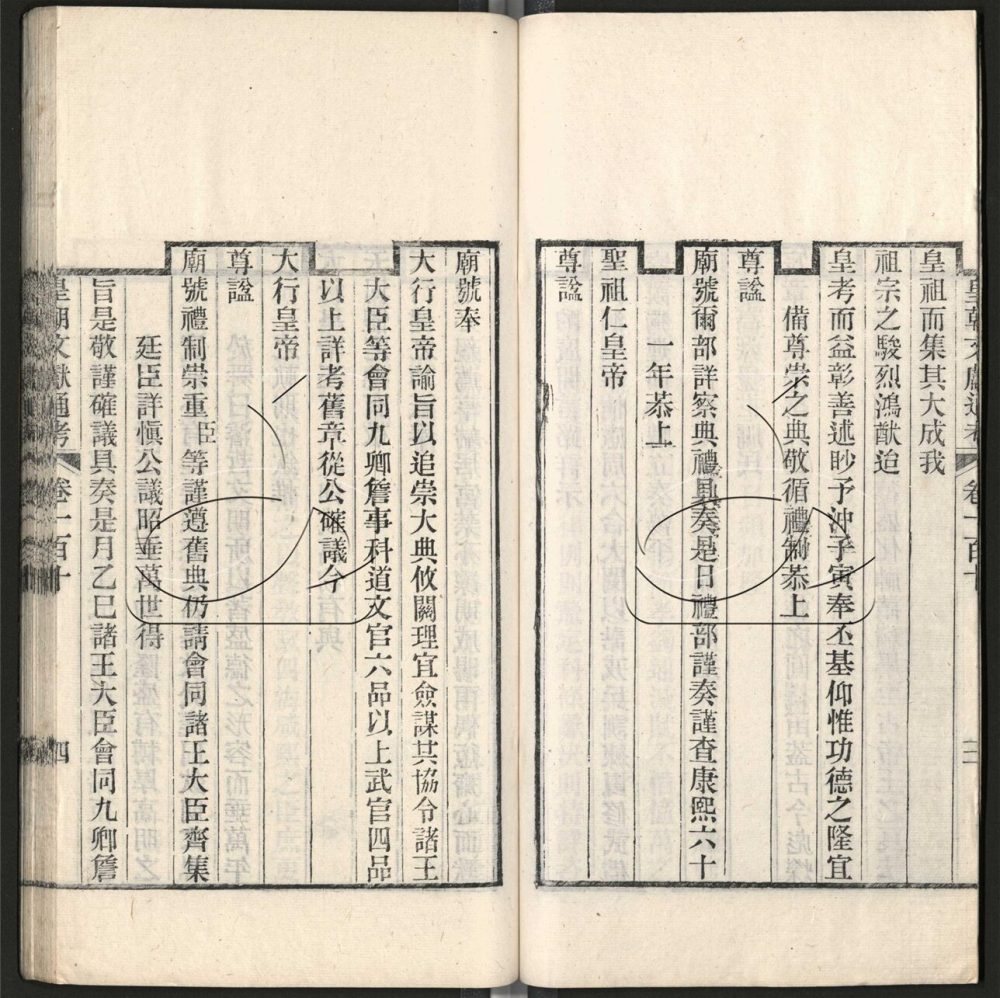 皇朝文獻通考 卷一百十 三
皇祖而集其大成我
祖宗之駿烈鴻猷迨
皇考而益彰善述眇予沖子寅奉丕基仰惟功德之隆宜
備尊崇之典敬循禮制恭上
尊諡
廟號爾部詳察典禮具奏是日禮部謹奏謹查康熙六十
一年恭上
聖祖仁皇帝
尊諡
廟號奉
大行皇帝諭旨以追崇大典攸關理宜僉謀其協令諸王
大臣等會同九卿詹事科道文官六品以上武官四品
以上詳考舊章從公確議今
大行皇帝
尊諡
廟號禮制崇重臣等謹遵舊典仍請會同諸王大臣齊集
廷臣詳慎公議昭垂萬世得
旨是敬謹確議具奏是月乙巳諸王大臣會同九卿詹
皇朝文獻通考 卷一百十 四